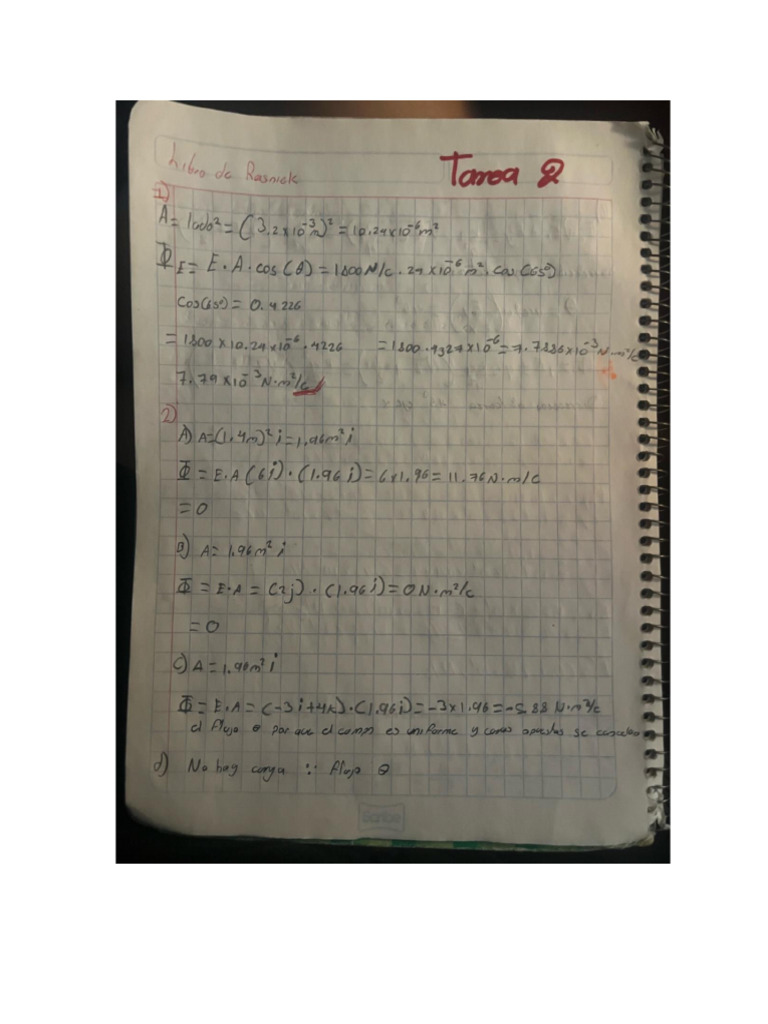 Libro de Rasnick
Tarea 2
1)
A = lado² = (3.2x10⁻³m)² = 10.24x10⁻⁶m²
Φ_E = E·A·cos(θ) = 1800 N/c · 24x10⁻⁶ m² · cos(65°)
Cos(65°) = 0.4226
= 1800 x 10.24x10⁻⁶ · .4226 = 1800 · 4327x10⁻⁶ = 7.7886x10⁻³ N·m²/c
7.79x10⁻³ N·m²/c
2)
A) A=(1.4m)² i = 1.96m² i
Φ = E·A (6i)·(1.96i) = 6x1.96 = 11.76 N·m/c
= 0
B) A = 1.96m² i
Φ = E·A = (2j)·(1.96i) = 0 N·m²/c
= 0
C) A = 1.96m² i
Φ = E·A = (-3i+4k)·(1.96i) = -3x1.96 = -5.88 N·m²/c
el flujo θ por que el campo es uniforme y caras opuestas se cancelan
d) No hay carga ∵ flujo θ
Scribe